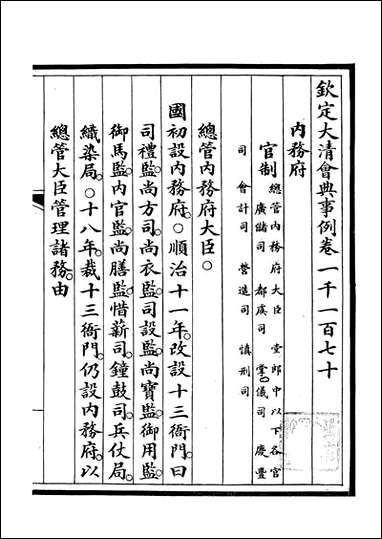 欽定大清會典事例卷一千一百七十
內務府
官制 總管內務府大臣 堂郎中以下各官 廣儲司 都虞司 掌儀司 慶豐
司 會計司 營造司 慎刑司
總管內務府大臣○
國初設內務府○順治十一年改設十三衙門曰
司禮監尚方司尚衣監司設監尚寶監御用監
御馬監內官監尚膳監惜薪司鐘鼓司兵仗局
織染局○十八年裁十三衙門仍設內務府以
總管大臣管理諸務由